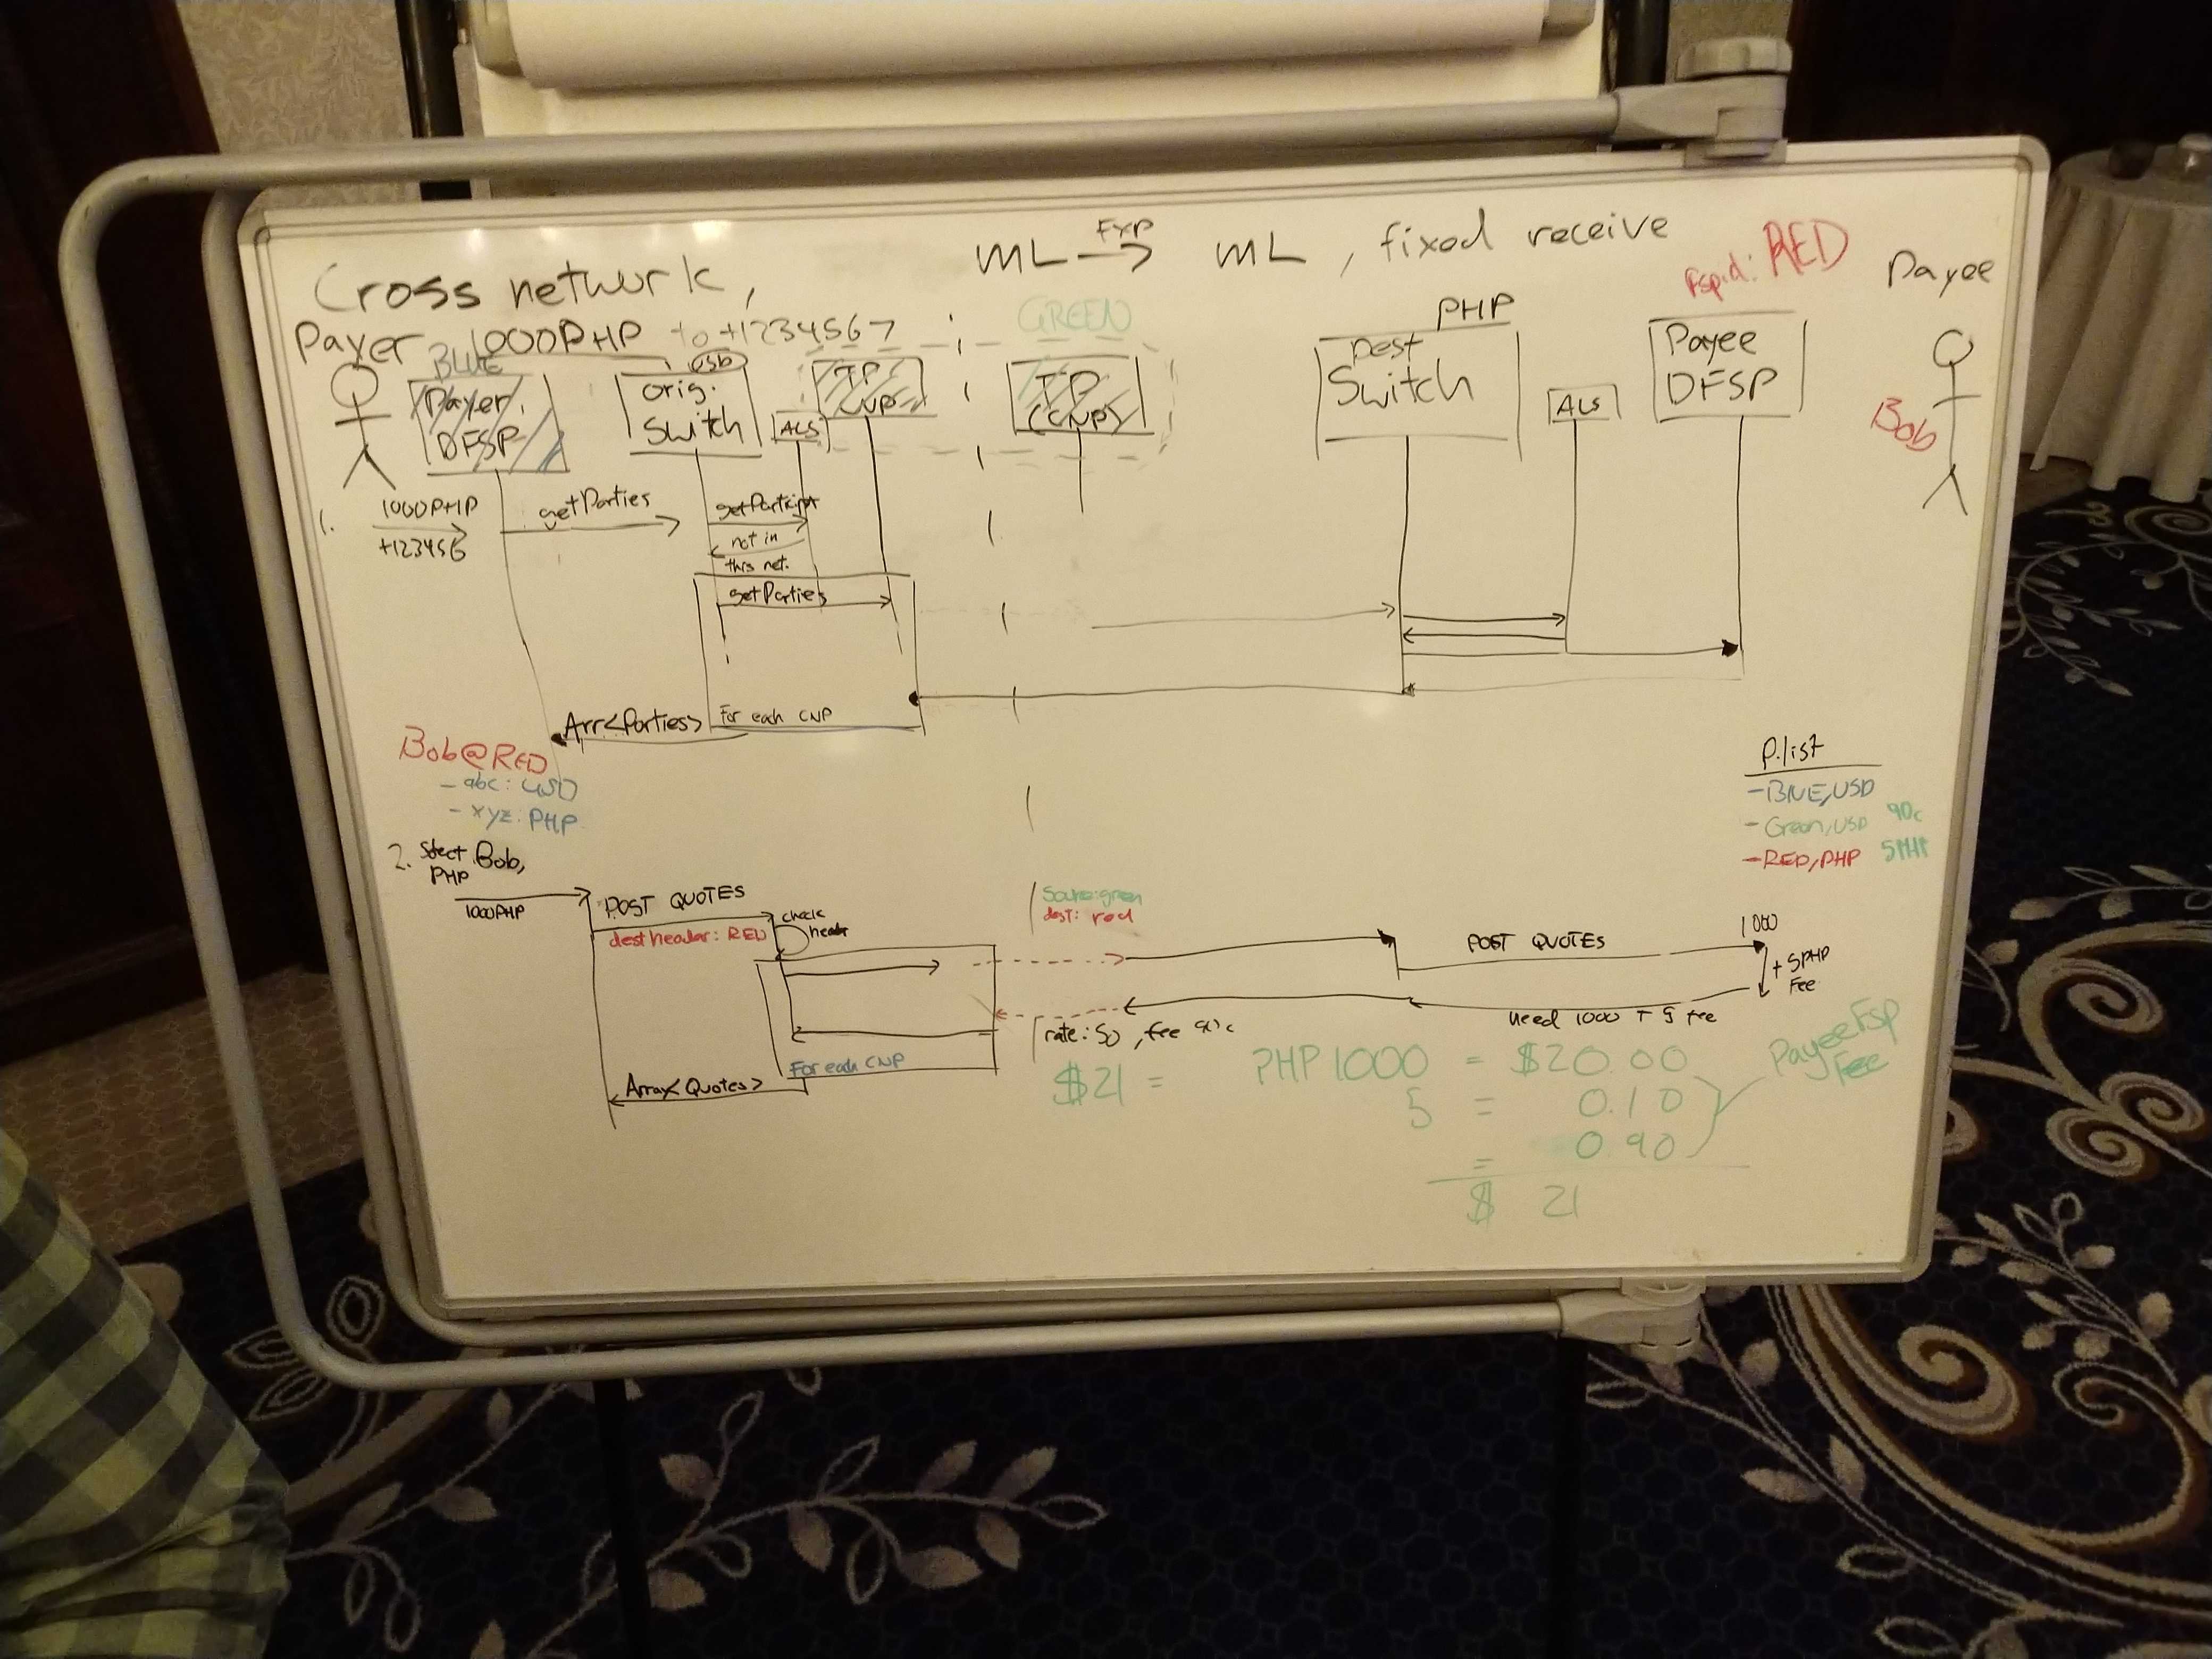 Cross network,
ML FXP → ML , fixed receive
Payer 1000PHP to +1234567
GREEN
PHP
Fspid: RED
Payee
BLUE
Payer DFSP
USD
orig. Switch
ALS
TP
CNP
TP
(CNP)
Dest Switch
ALS
Payee DFSP
Bob
1.
1000PHP
+123456
getParties
getParticipt
not in
this net.
getParties
For each CNP
Arr<Parties>
Bob@RED
- abc: USD
- xyz: PHP
P.list
- BLUE, USD
- Green, USD 90c
- RED, PHP 5PHP
2. Select Bob,
PHP
1000PHP
POST QUOTES
dest header: RED
check
header
Source: green
dest: red
POST QUOTES
1000
+ 5PHP
Fee
need 1000 + 5 fee
rate: 50, fee 90c
For each CNP
Array<Quotes>
$21 = PHP 1000 = $20.00
5 = 0.10
= 0.90
$ 21
PayeeFsp
Fee